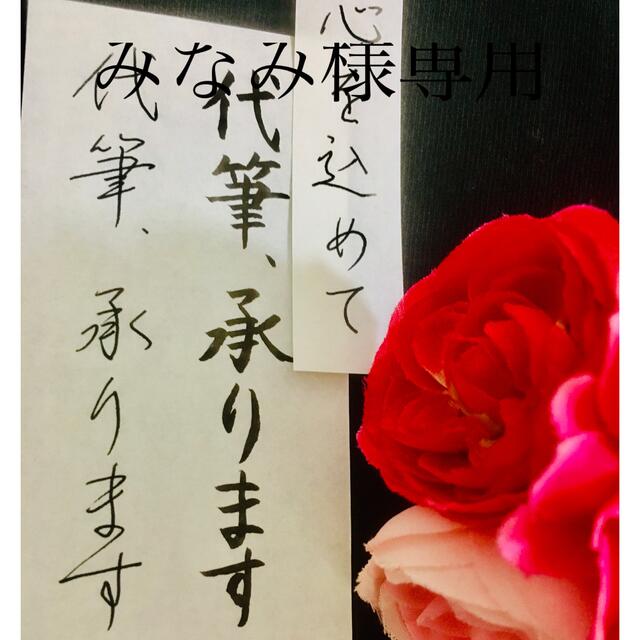 みなみ様専用
心を込めて
代筆、承ります
代筆、承ります